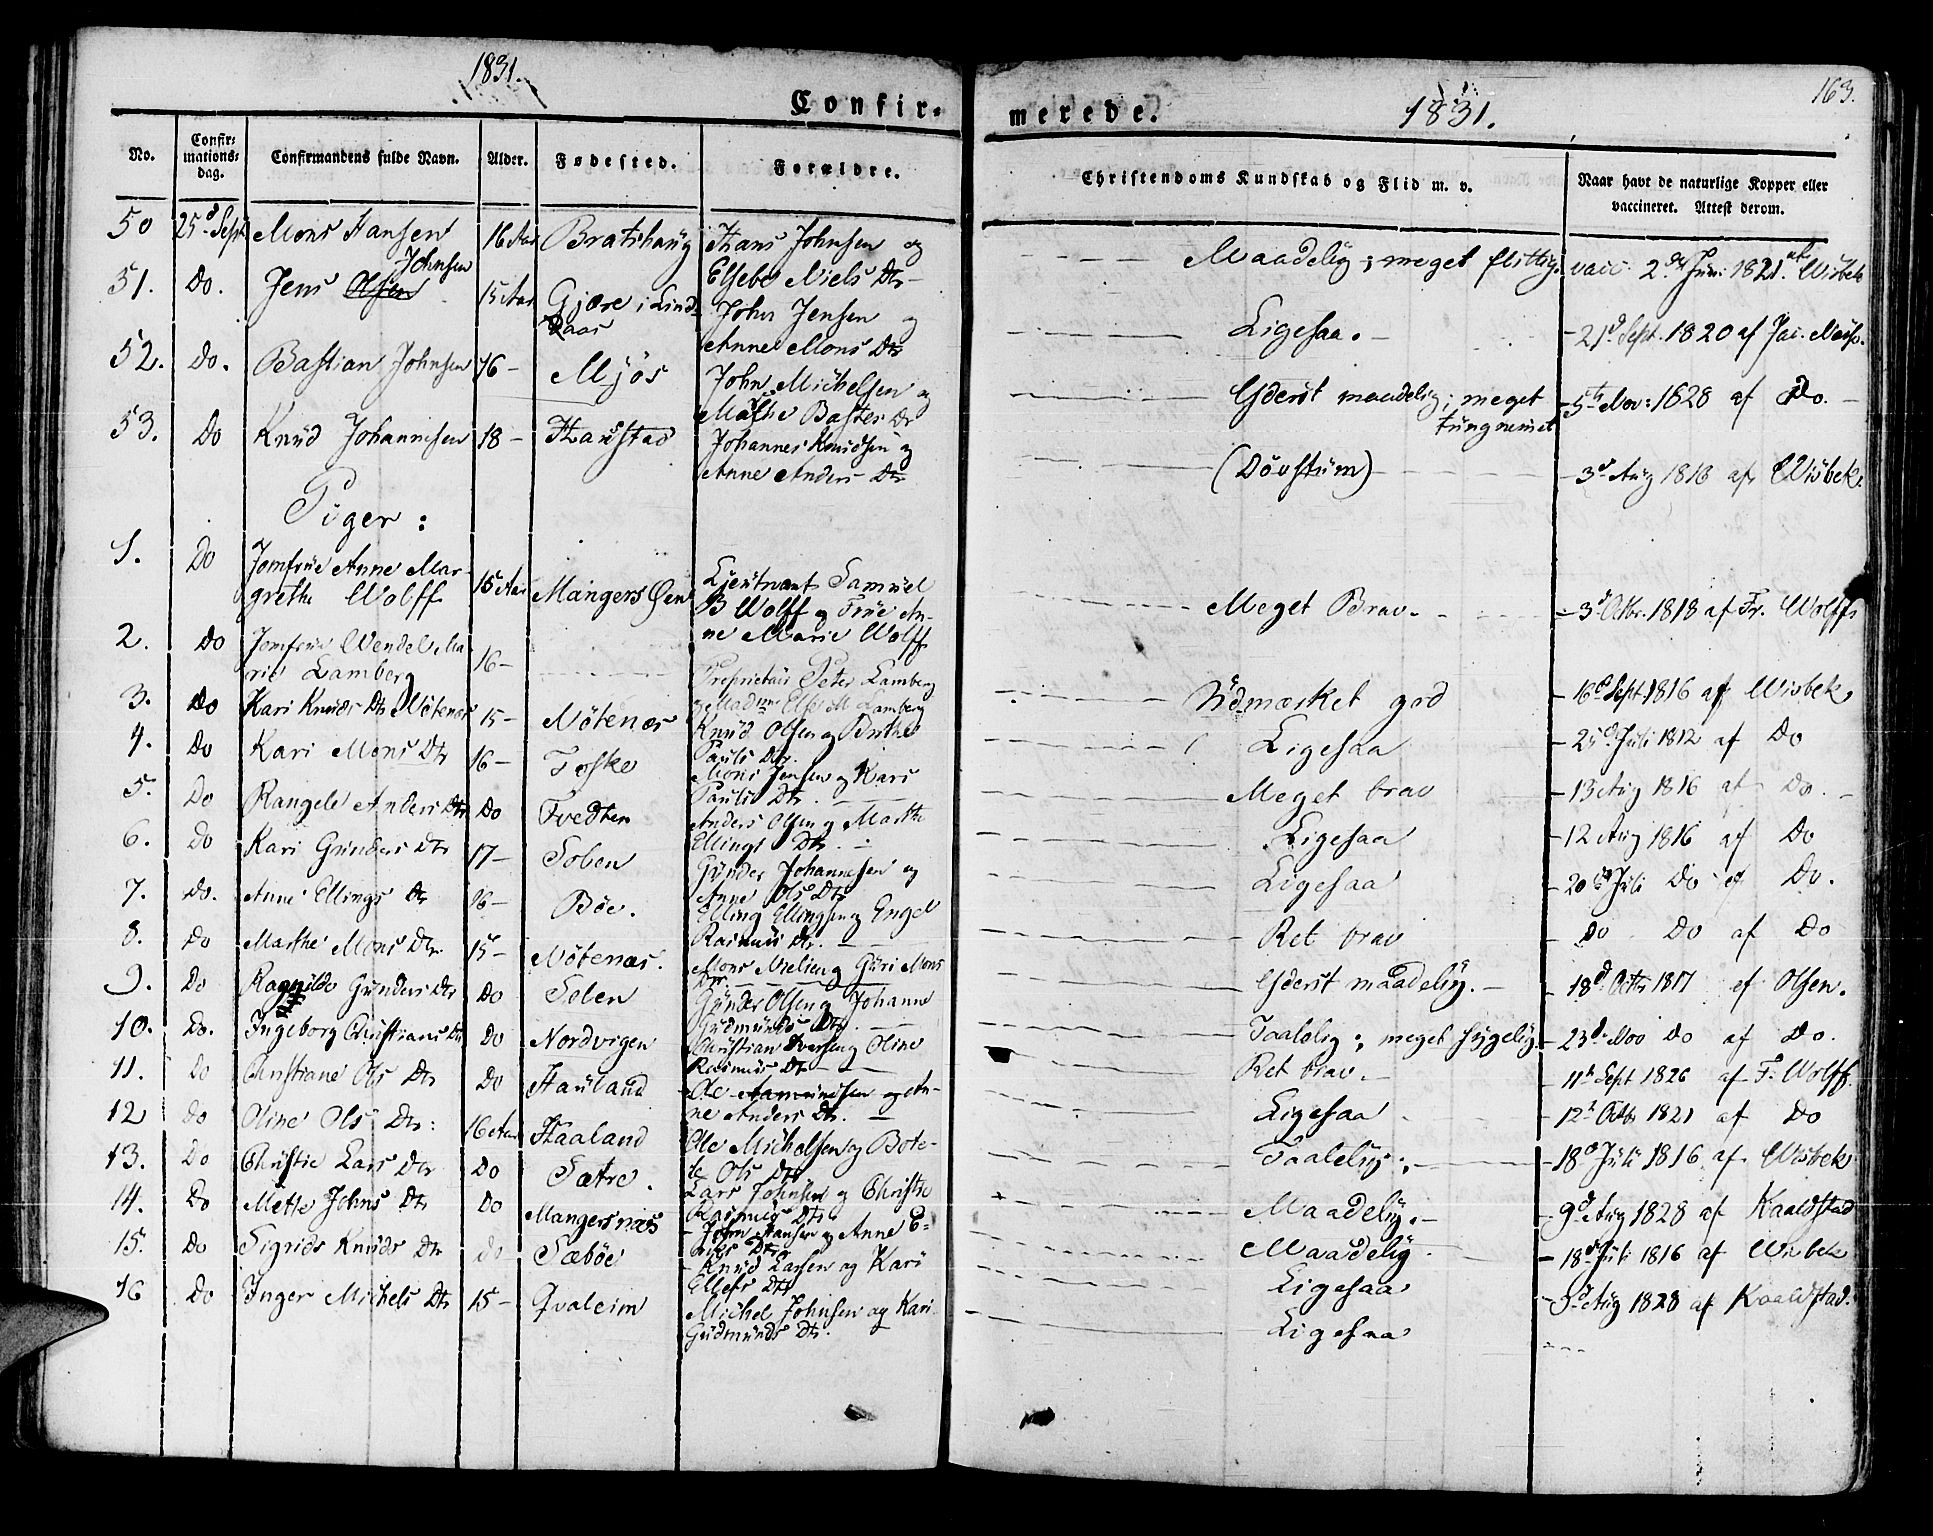 1831.
Confir-
merede.
1831.
163.
No.
Confir-
mations-
dag.
Confirmandens fulde Navn.
Alder.
Fødested.
Forældre.
Christendoms Kundskab og Flid m. v.
Naar havt de naturlige Kopper eller
vaccineret. Attest derom.
50 25d Sept Mons Hansen 16 Aar Bratshaug Hans Johnsen og
Elsebe Niels Dtr
Maadelig; meget flittig vacc. 2d Juni 1821 af Wisbek
51. Do. Jens Olsen Johnsen 15 Aar Gjære i Lind-
aas
John Jensen og
Anne Mons Dtr
Ligesaa. 21d Sept. 1820 af Jac.
52. Do. Bastian Johnsen 16 Mjös John Michelsen og
Marthe Basties Dr
Yderst maadelig; meget
tungnemet
5th Nov: 1828 af Do.
53. Do Knud Johannesen 18 Haustad Johannes Knudsen og
Anne Anders Dtr
(Dövstum) 3d Aug 1816 af Wisbek.
Piger:
1. Do Jomfrue Anne Mar-
grethe Wolff
15 Aar Mangers Øen Lieutnant Samuel
B Wolff og Frue An-
ne Marie Wolff
Meget Brav. 3d Octbr. 1818 af Fr. Wolff
2. Do Jomfrue Wendel Ma-
rie Lamberg
16 Proprietair Peter Lamberg
og Madme Else M Lamberg
Udmærket god 16d Sept. 1816 af Wisbek
3. Do Kari Knuds Dtr Nötenæs 15 Nötenæs Knud Olsen og Birthe
Pauls Dtr.
Ligesaa 25d Juli 1812 af Do
4. Do Kari Mons Dtr 16 Toske Mons Jensen og Kari
Pauls Dtr.
Meget brav 13 Aug 1816 af Do.
5. Do Rangele Anders Dtr Do Tvedten Anders Olsen og Marthe
Ellings Dtr.
Ligesaa 12 Aug 1816 af Do
6. Do Kari Gunders Dtr 17 Solen Gunder Johannesen og
Anne Ols Dtr
Ligesaa 20de Juli Do af Do.
7. Do. Anne Ellings Dtr 16 Böe. Elling Ellingsen og Engel
Rasmus Dtr.
Ret brav Do Do af Do
8. Do Marthe Mons Dtr 15 Nötenæs. Mons Nielsen og Guri Mons
Dtr.
Yderst maadelig. 18d Octbr 1817 af Olsen.
9. Do Ragnilde Gunders Dtr Do Solen Gunder Olsen og Johanne
Gudmunds Dtr.
Taalelig; meget sygelig. 23d Nov Do af Do.
10. Do. Ingeborg Christians Dtr Do Nordvigen Christian Iversen og Oline
Rasmus Dtr
Ret brav. 11t Sept 1826 af F. Wolff.
11. Do Christiane Ols Dtr Do Hauland Ole Aamundsen og An-
ne Anders Dtr.
Ligesaa 12t Octb 1821 af Do
12 Do Oline Ols Dtr: 16 Aar Haaland Ole Michelsen og Bote-
le Ols Dtr
Taalelig. 18d Juli 1816 af Wisbek
13. Do Christie Lars Dtr Do Sætre. Lars Johnsen og Christie
Rasmus Dtr
Maadelig. 9d Aug 1828 af Kaaldstad
14. Do Mette Johns Dtr Do Mangersnæs John Hansen og Anne E-
riks Dtr
Maadelig. 18d Juli 1816 af Wisbek
15. Do Sigrids Knuds Dtr do Sæböe Knud Larsen og Kari
Ellefs Dtr
Ligesaa 5d Aug 1828 af Kaaldstad.
16 Do Inger Michels Dtr 15 Qvaleim Michel Johnsen og Kari
Gudmunds Dtr.
Ligesaa